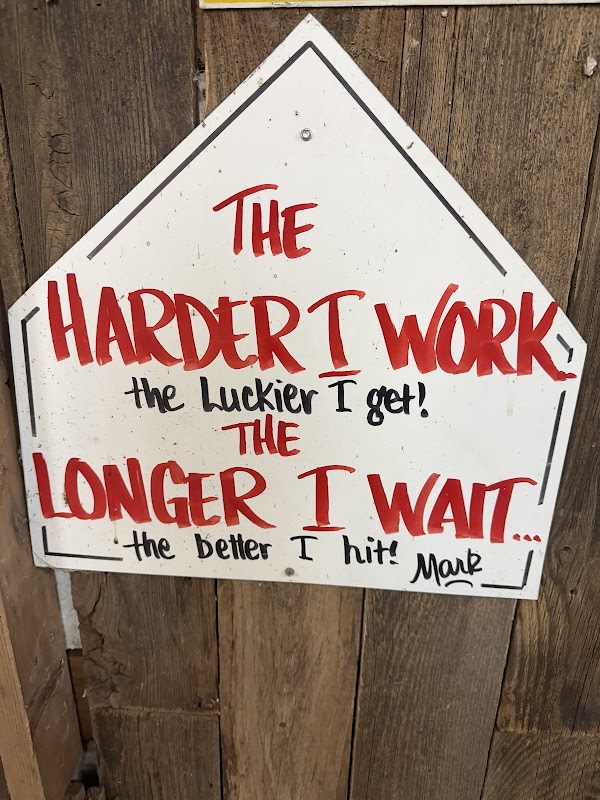 THE
HARDER I WORK.
the Luckier I get!
THE
LONGER I WAIT...
the better I hit!
Mark